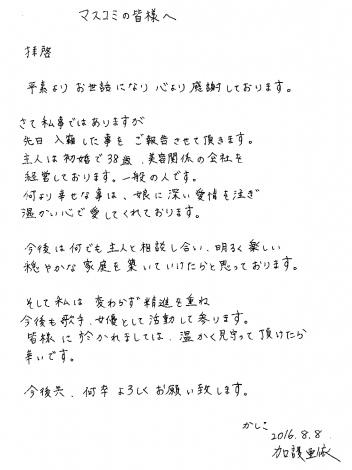 マスコミの皆様へ
拝啓
平素より お世話になり 心より 感謝しております。
さて 私事ではありますが
先日 入籍した事を ご報告させて頂きます。
主人は 初婚で 38歳、美容関係の会社を
経営しております。一般の人です。
何より幸せな事は、娘に深い愛情を注ぎ
温かい心で愛してくれております。
今後は何でも主人と相談し合い、明るく楽しい
穏やかな家庭を築いていけたらと思っております。
そして私は 変わらず精進を重ね
今後も歌手、女優として活動して参ります。
皆様に於かれましては、温かく見守って頂けたら
幸いです。
今後共、何卒よろしくお願い致します。
かしこ
2016.8.8
加護亜依